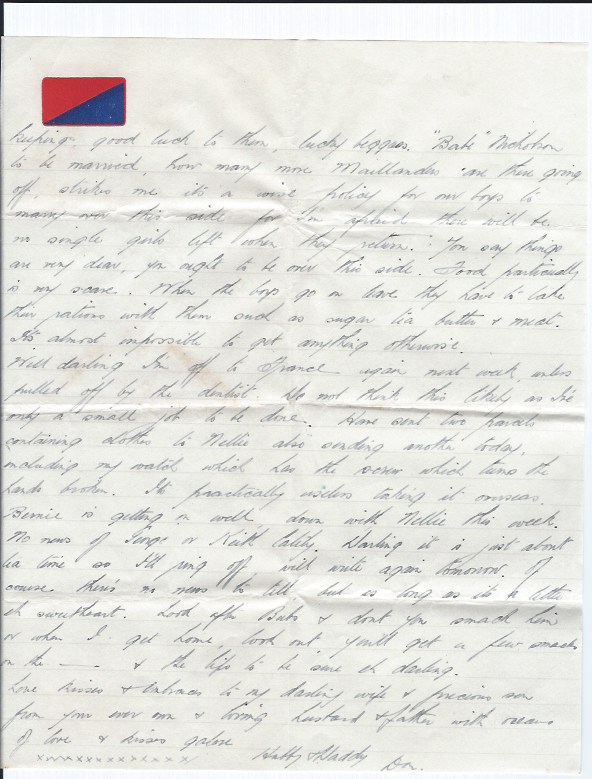 keeping, good luck to them, lucky beggars. "Babe" Nicholson
to be married, how many more Maitlanders are there going
off, strikes me it's a wise policy for our boys to
marry over this side for I'm afraid there will be
no single girls left when they return. You say things
are very dear, you ought to be over this side. Food
is very scarce. When the boys go on leave they have to take
their rations with them such as sugar tea butter & meat.
Its almost impossible to get anything otherwise.
Well darling I'm off to France again next week, unless
pulled off by the dentist. Do not think this likely as I've
only a small job to be done. Have sent two parcels
containing clothes to Nellie also sending another today,
including my watch which has the screw which turns the
hands broken. Its practically useless taking it overseas.
Bernie is getting on well, down with Nellie this week.
No news of or Keith lately. Darling it is just about
tea time so I'll ring off will write again tomorrow. Of
course there's no news to tell but as long as its a letter
eh sweetheart. Look after Bubs & dont you smack him
or when I get home, look out, you'll get a few smacks
on the —— & the lips to be sure eh darling.
Love kisses & embraces to my darling wife & precious son
from your ever own & loving husband & father with oceans
of love & kisses galore
Hubby & Daddy Don.
x x x x x x x x x x x x x x